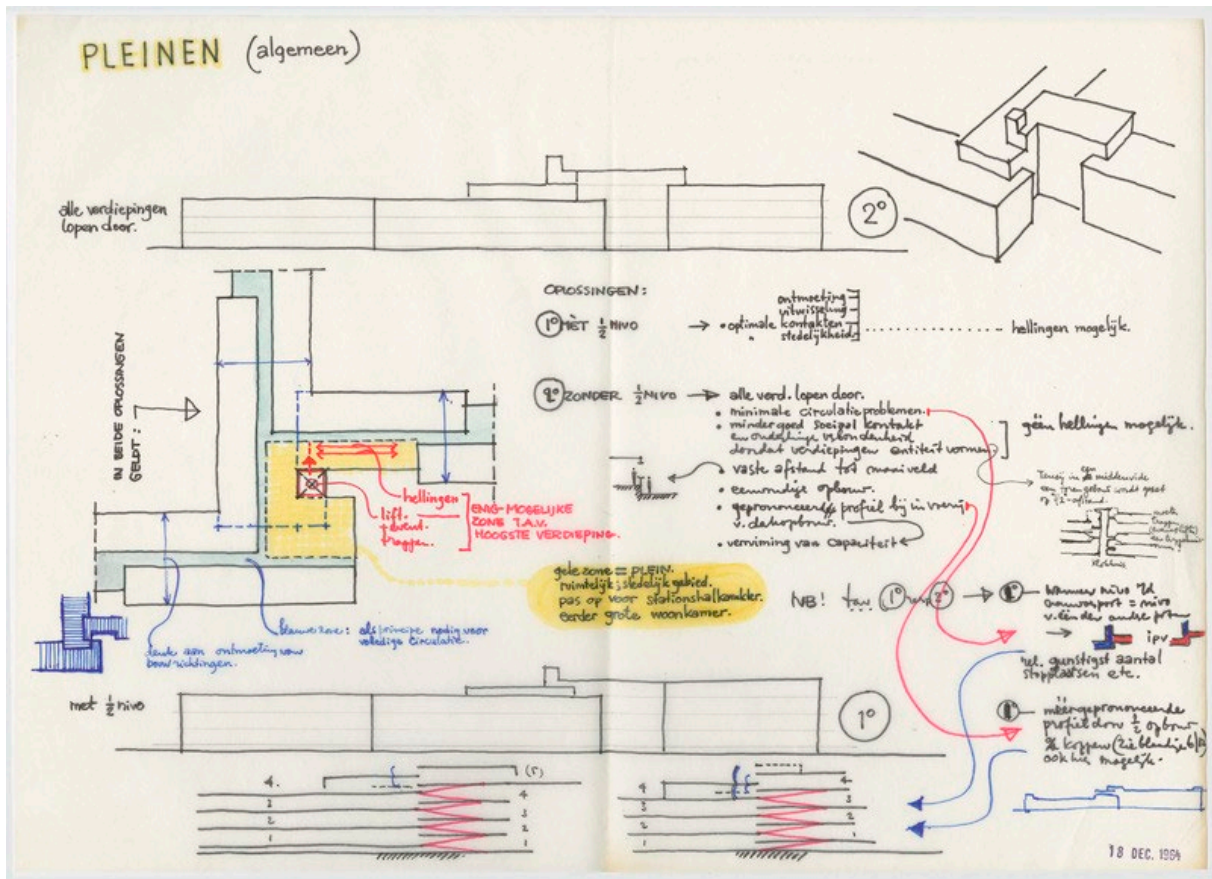 PLEINEN (algemeen)
alle verdiepingen
lopen door.
2°
OPLOSSINGEN:
1° MÈT ½ NIVO → • optimale kontakten
ontmoeting
uitwisseling
" stedelijkheid
hellingen mogelijk.
2° ZONDER ½ NIVO → alle verd. lopen door.
• minimale circulatieproblemen.
• minder goed sociaal kontakt
en onderlinge verbondenheid
doordat verdiepingen entiteit vormen
géén hellingen mogelijk.
• vaste afstand tot maaiveld
• eenvoudige opbouw.
• geprononceerd profiel bij
v. dakopbouw.
• verruiming van capaciteit
IN BEIDE OPLOSSINGEN
GELDT:
hellingen
lift.
event.
trappen.
ENIG-MOGELIJKE
ZONE T.A.V.
HOOGSTE VERDIEPING.
gele zone = PLEIN.
ruimtelijk; stedelijk gebied.
pas op voor stationshalkarakter.
eerder grote woonkamer.
blauwe zone: als principe nodig voor
volledige circulatie.
denk aan ontmoeting van
bouwrichtingen.
Tenzij in een middenvide
NB! t.a.v. 1° 2° →
→ ipv
rel. gunstigst aantal
stopplaatsen etc.
méérgeprononceerde
profiel door ½ opbouw
ook hier mogelijk.
met ½ nivo
1°
4. (5)
4
3 3
2 2
1 1
4 4
3 3
2 2
1 1
18 DEC. 1964